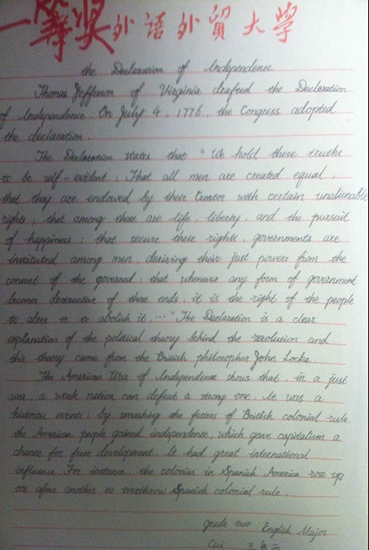 一等奖外语外贸大学
the Declaration of Independence
Thomas Jefferson of Virginia drafted the Declaration
of Independence. On July 4, 1776, the Congress adopted
the declaration.
The Declaration states that "We hold these truths
to be self-evident; That all men are created equal;
that they are endowed by their Creator with certain unalienable
rights; that among these are life, liberty, and the pursuit
of happiness; that secure these rights, governments are
instituted among men, deriving their just powers from the
consent of the governed; that whenever any form of government
becomes destructive of these ends, it is the right of the people
to alter or to abolish it; ···" The Declaration is a clear
explanation of the political theory behind the revolution and
this theory came from the British philosopher John Locke.
The American War of Independence shows that, in a just
war, a weak nation can defeat a strong one. It was a
historic events; by smashing the fetters of British colonial rule
the American people gained independence, which gave capitalism a
chance for free development. It had great international
influence. For instance, the colonies in Spanish America rose up
one after another to overthrow Spanish colonial rule.
grade two English Major
Cui